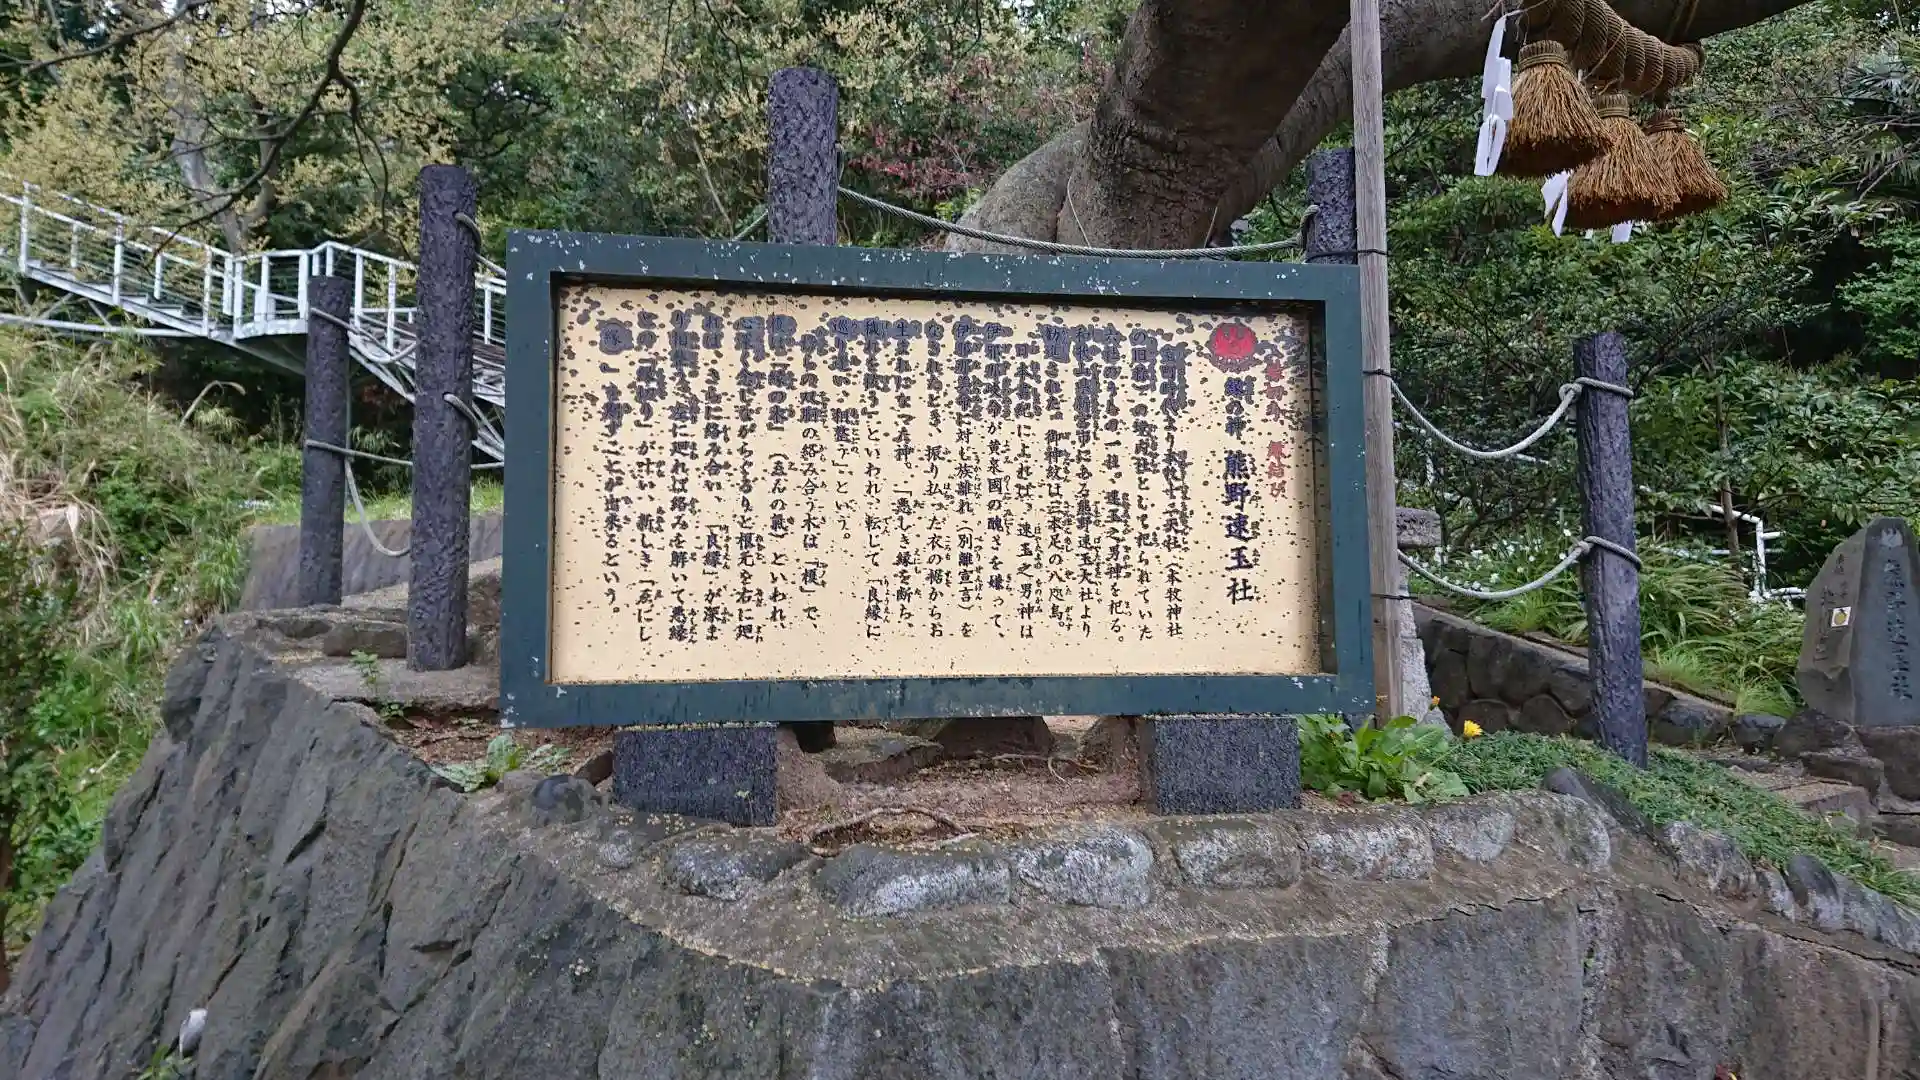 縁切り 縁結び
縁の神 熊野速玉社
室町時代より本牧十二天社（本牧神社
の旧称）の境内社として祀られていた
六社のうちの一社。速玉之男神を祀る。
和歌山県新宮市にある熊野速玉大社より
勧請された。御神紋は三本足の八咫烏。
日本書紀によれば、速玉之男神は
伊邪那岐命が黄泉國の醜さを嫌って、
伊邪那美命に対し族離れ（別離宣言）を
なされたとき、振り払った衣の裾からお
生まれになった神。「悪しき縁を断ち、
穢れを祓う」といわれ、転じて「良縁に
巡り逢い、相整う」という。
の双胴の絡み合う木は「榎」で、
榎は「縁の木」（ゑんの氣）といわれ、
心深く念じながらぐるりと根元を右に廻
れば、さらに絡み合い、「良縁」が深ま
り相整え、左に廻れば絡みを解いて悪縁
との「縁切り」が叶い、新しき「ゑにし
（縁）」を結ぶことが出来るという。